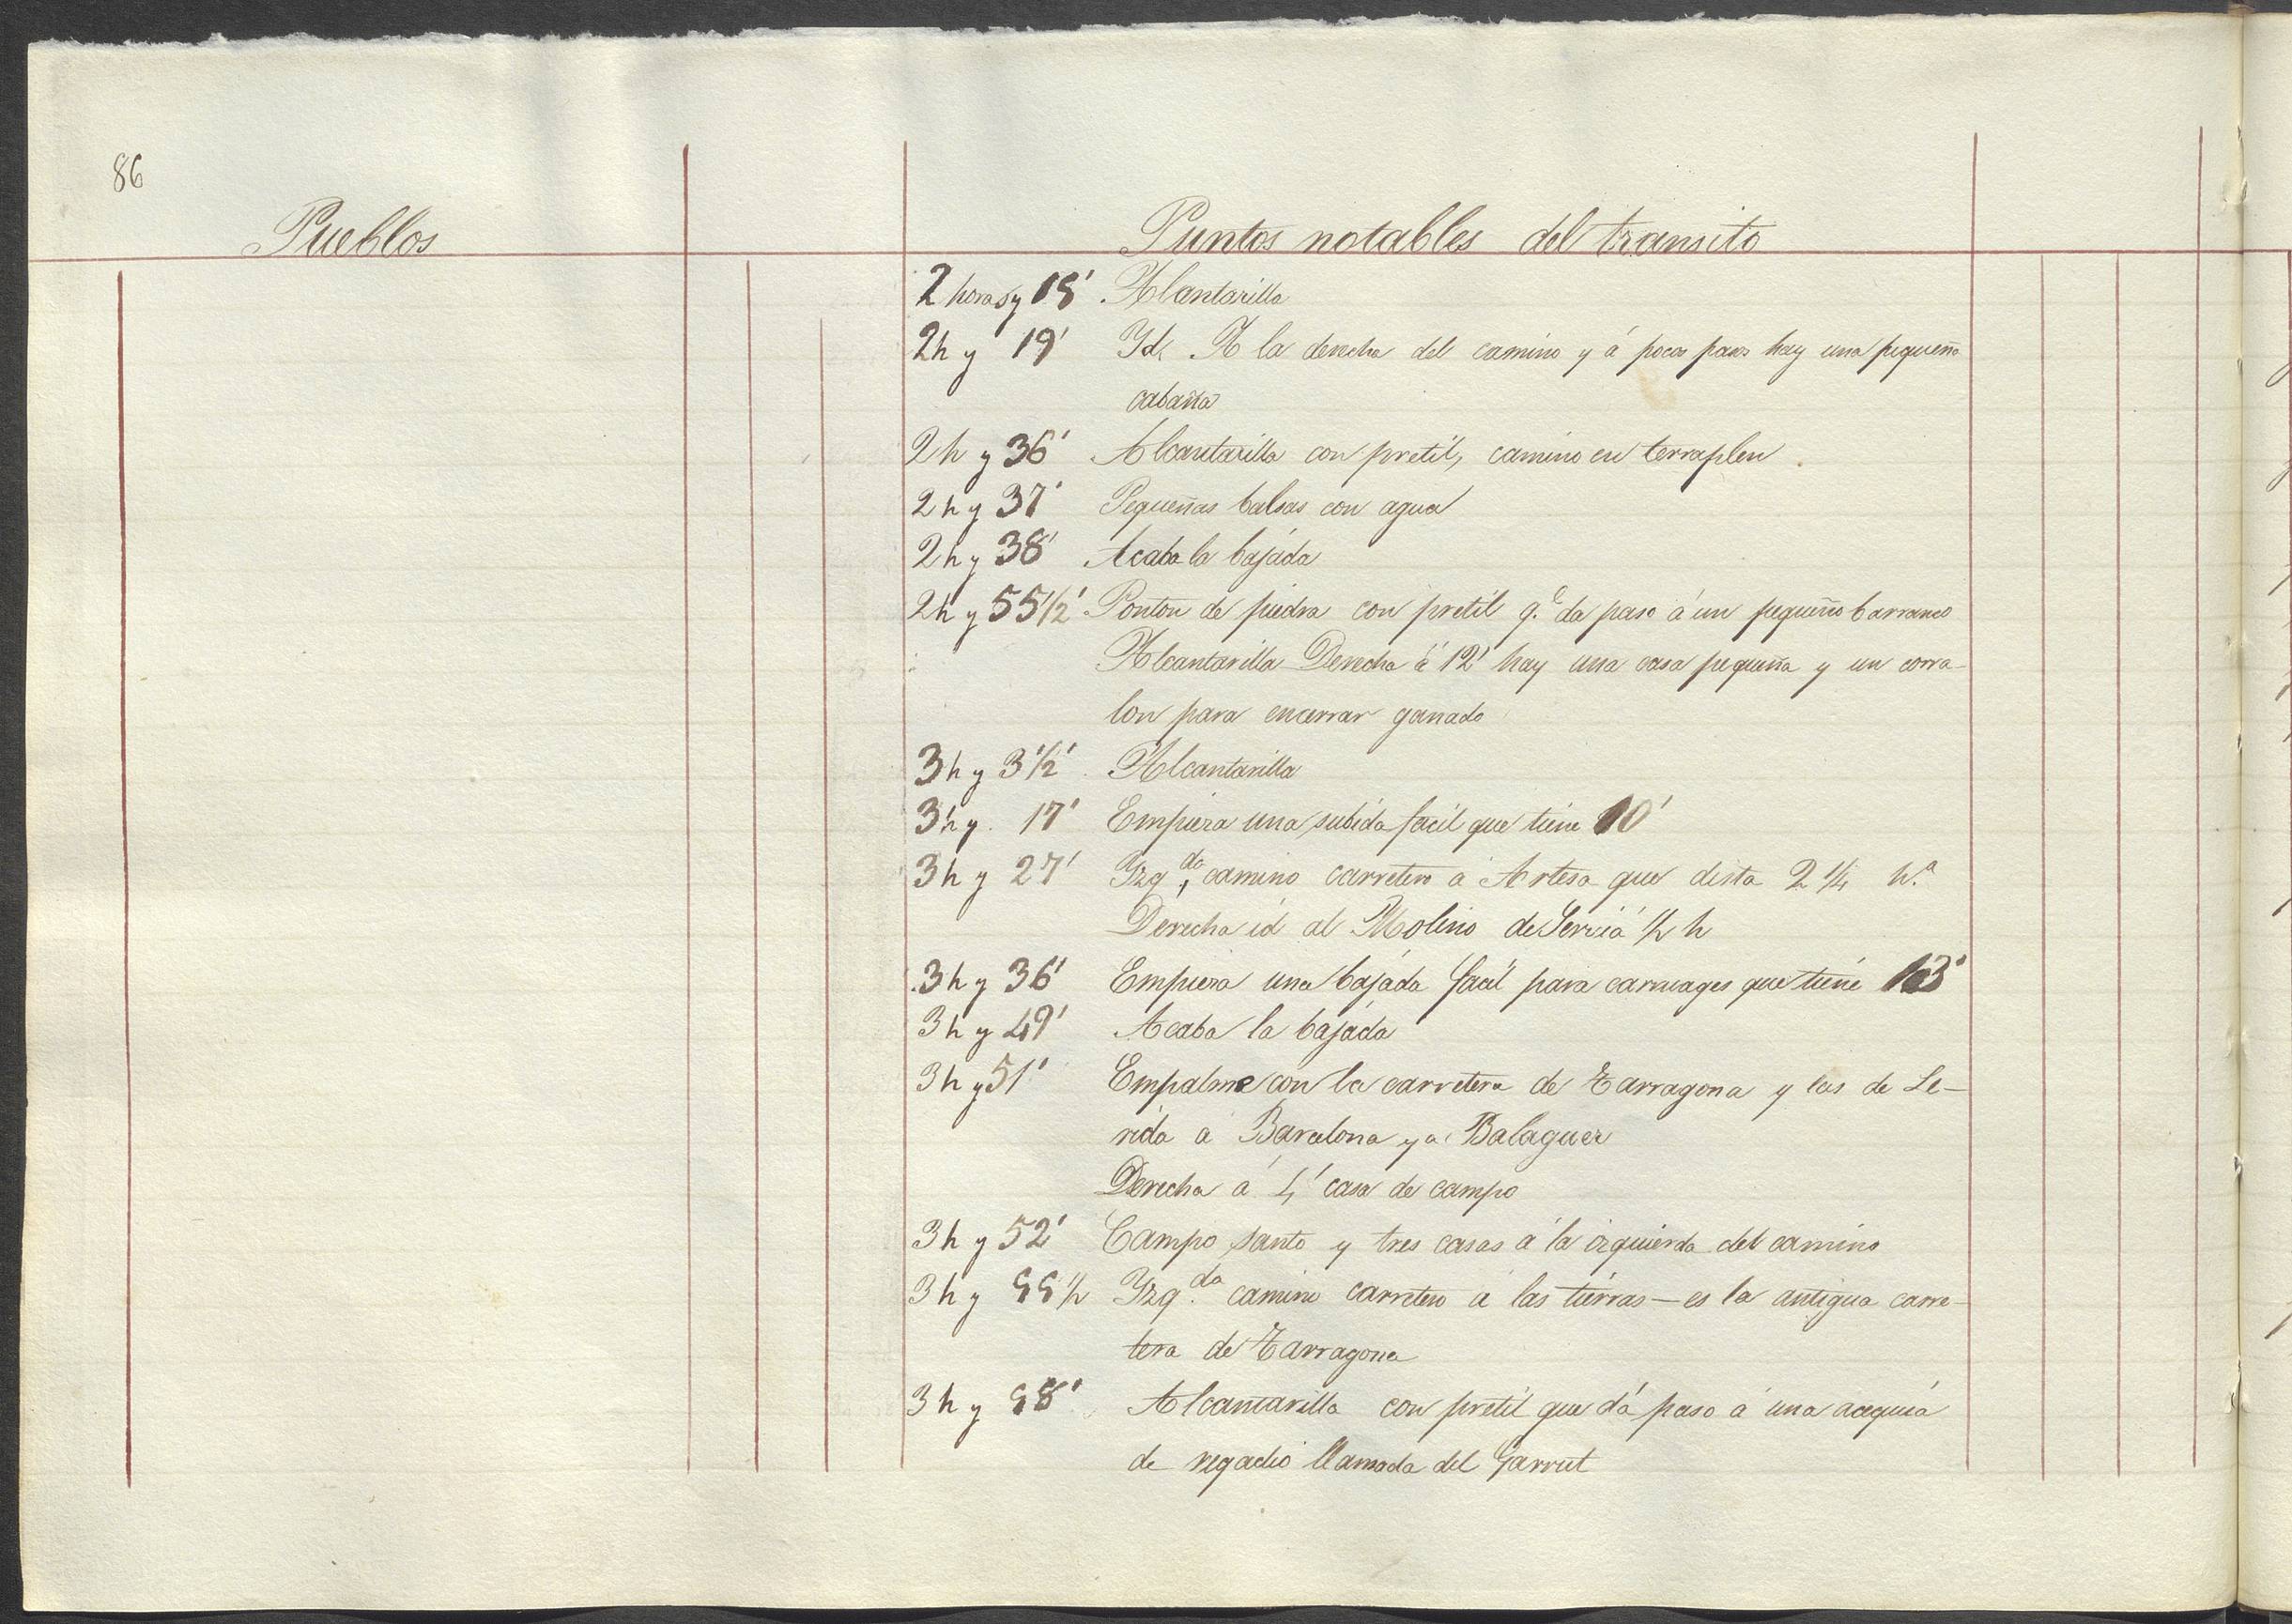 86
Pueblos
Puntos notables del transito
2 horas y 15' Alcantarilla
2h y 19' Yd. A la derecha del camino y á pocos pasos hay una pequeña
cabaña
2h y 36' Alcantarilla con pretil, camino en terraplen
2h y 37' Pequeñas balsas con agua
2h y 38' Acaba la bajada
2h y 55 1/2' Ponton de piedra con pretil q.e da paso á un pequeño barranco
Alcantarilla Derecha á 12' hay una casa pequeña y un corra-
lon para encerrar ganado
3h y 3 1/2' Alcantarilla
3h y 17' Empieza una subida facil que tiene 10'
3h y 27' Yzq.da, camino carretero á Artesa que dista 2 1/4 h.a
Derecha id al Molino de Serviá 1/2 h
3h y 36' Empieza una bajada facil para carruages que tiene 13'
3h y 49' Acaba la bajada
3h y 51' Empalme con la carretera de Tarragona y las de Le-
rida á Barcelona y a Balaguer
Derecha á 4' casa de campo
3h y 52' Campo santo y tres casas á la izquierda del camino
3h y 55 1/2 Yzq.da camino carretero á las tierras - es la antigua carre-
tera de Tarragona
3h y 58' Alcantarilla con pretil que dá paso á una acequia
de regadio llamada del Garrut